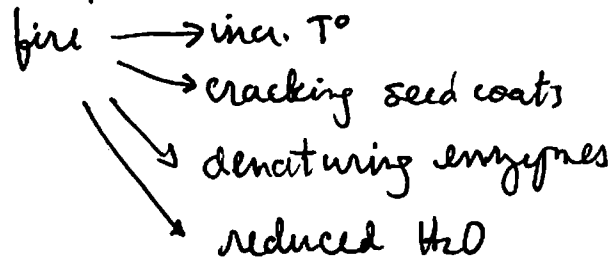 fire → incr. T°
→ cracking seed coats
→ denaturing enzymes
→ reduced H2O